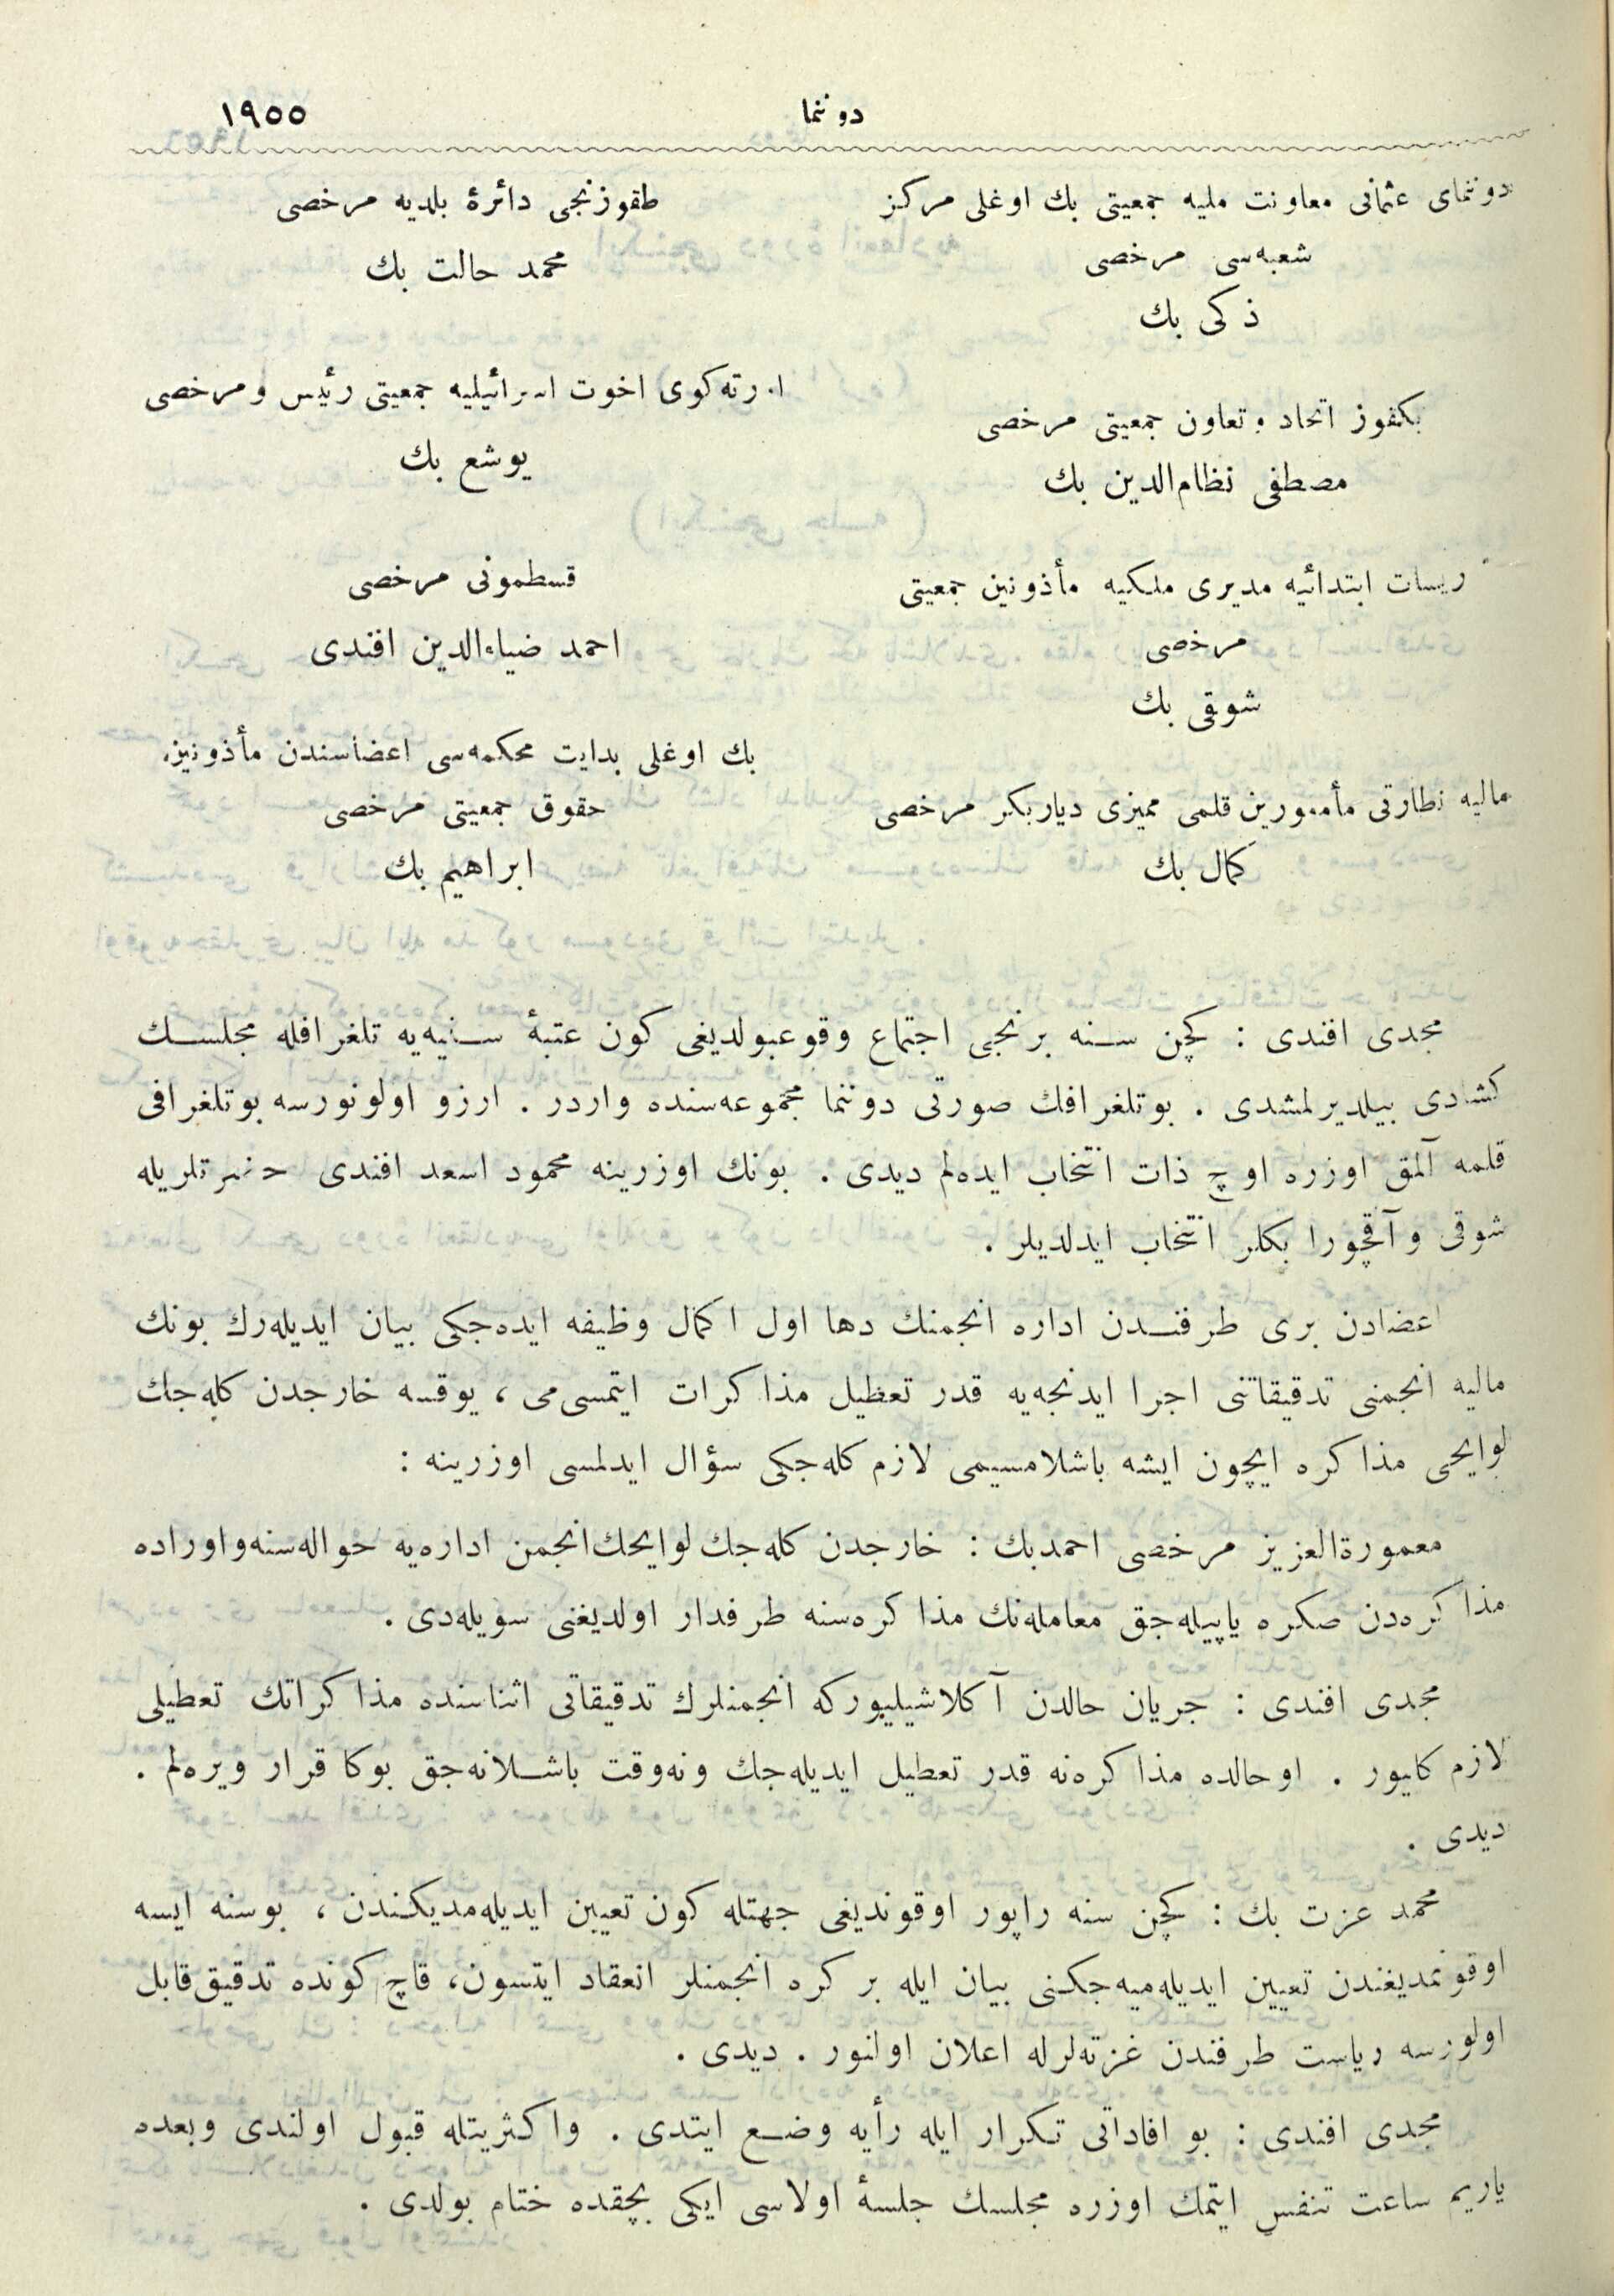 دوننما
١٩٥٥
دوننمای عثمانی معاونت ملیه جمعیتی بك اوغلی مركز
شعبه‌سی مرخصی
ذكی بك
بكفوز اتحاد و تعاون جمعیتی مرخصی
مصطفی نظام‌الدین بك
ریسات ابتدائیه مدیری ملكیه مأذونین جمعیتی
مرخصی
شوقی بك
مالیه نظارتی مأمورین قلمی ممیزی دیاربكر مرخصی
كمال بك
طقوزنجی دائرهٔ بلدیه مرخصی
محمد حالت بك
اورته‌كوی اخوت اسرائیلیه جمعیتی رئیس ومرخصی
یوشع بك
قسطمونی مرخصی
احمد ضیاءالدین افندی
بك اوغلی بدایت محكمه‌سی اعضاسندن مأذونین
حقوق جمعیتی مرخصی
ابراهیم بك
مجدی افندی : كچن سنه برنجی اجتماع وقوعبولدیغی كون عتبهٔ سنیه‌یه تلغرافله مجلسك
كشادی بیلدیرلمشدی . بوتلغرافك صورتی دوننما مجموعه‌سنده واردر . ارزو اولونورسه بوتلغرافی
قلمه آلمق اوزره اوچ ذات انتخاب ایده‌لم دیدی . بونك اوزرینه محمود اسعد افندی حضرتلریله
شوقی وآقچورا بكلر انتخاب ایدلدیلر .
اعضادن بری طرفندن اداره انجمنك دها اول اكمال وظیفه ایده‌جكی بیان ایدیله‌رك بونك
مالیه انجمنی تدقیقاتنی اجرا ایدنجه‌یه قدر تعطیل مذاكرات ایتمسی‌می ، یوقسه خارجدن كله‌جك
لوایحی مذاكره ایچون ایشه باشلامسیمی لازم كله‌جكی سؤال ایدلمسی اوزرینه :
معمورة‌العزیز مرخصی احمدبك : خارجدن كله‌جك لوایحك انجمن اداره‌یه حواله‌سنه واوراده
مذاكره‌دن صكره یاپیله‌جق معامله‌نك مذاكره‌سنه طرفدار اولدیغنی سویله‌دی .
مجدی افندی : جریان حالدن آكلاشیلیوركه انجمنلرك تدقیقاتی اثناسنده مذاكراتك تعطیلی
لازم كلیور . اوحالده مذاكره‌نه قدر تعطیل ایدیله‌جك ونه‌وقت باشلانه‌جق بوكا قرار ویره‌لم .
دیدی .
محمد عزت بك : كچن سنه راپور اوقوندیغی جهتله كون تعیین ایدیله‌مدیكندن ، بوسنه ایسه
اوقونمدیغندن تعیین ایدیله‌میه‌جكنی بیان ایله بر كره انجمنلر انعقاد ایتسون، قاچ كونده تدقیق قابل
اولورسه ریاست طرفندن غزته‌لرله اعلان اولنور . دیدی .
مجدی افندی : بو افاداتی تكرار ایله رأیه وضع ایتدی . واكثریتله قبول اولندی وبعده
یاریم ساعت تنفس ایتمك اوزره مجلسك جلسهٔ اولاسی ایكی بچقده ختام بولدی .